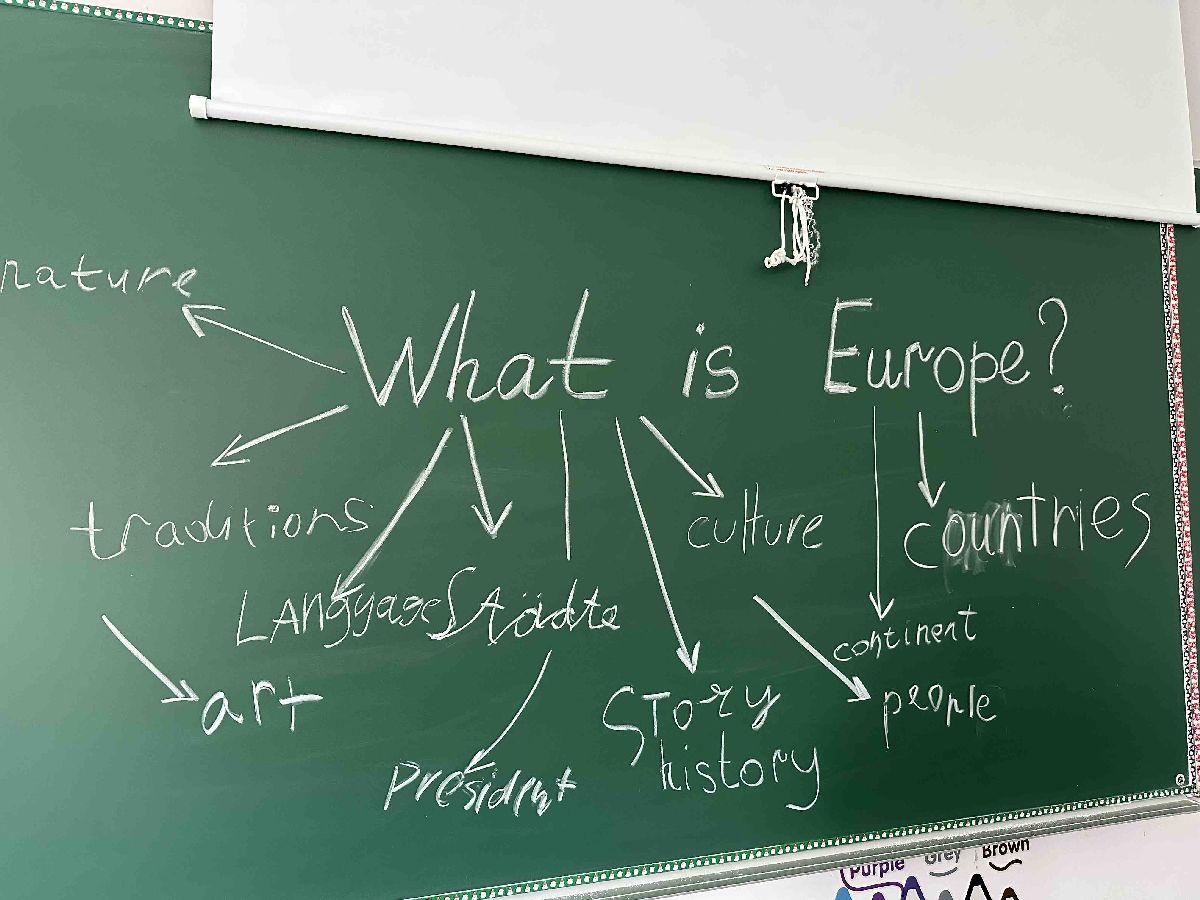 nature
What is Europe?
traditions
culture
countries
LANgyages
Städte
continent
art
Story
people
history
President
Purple
Grey
Brown